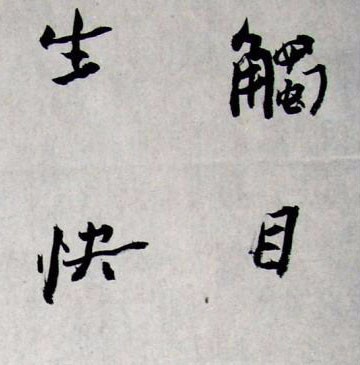 觸目
生快